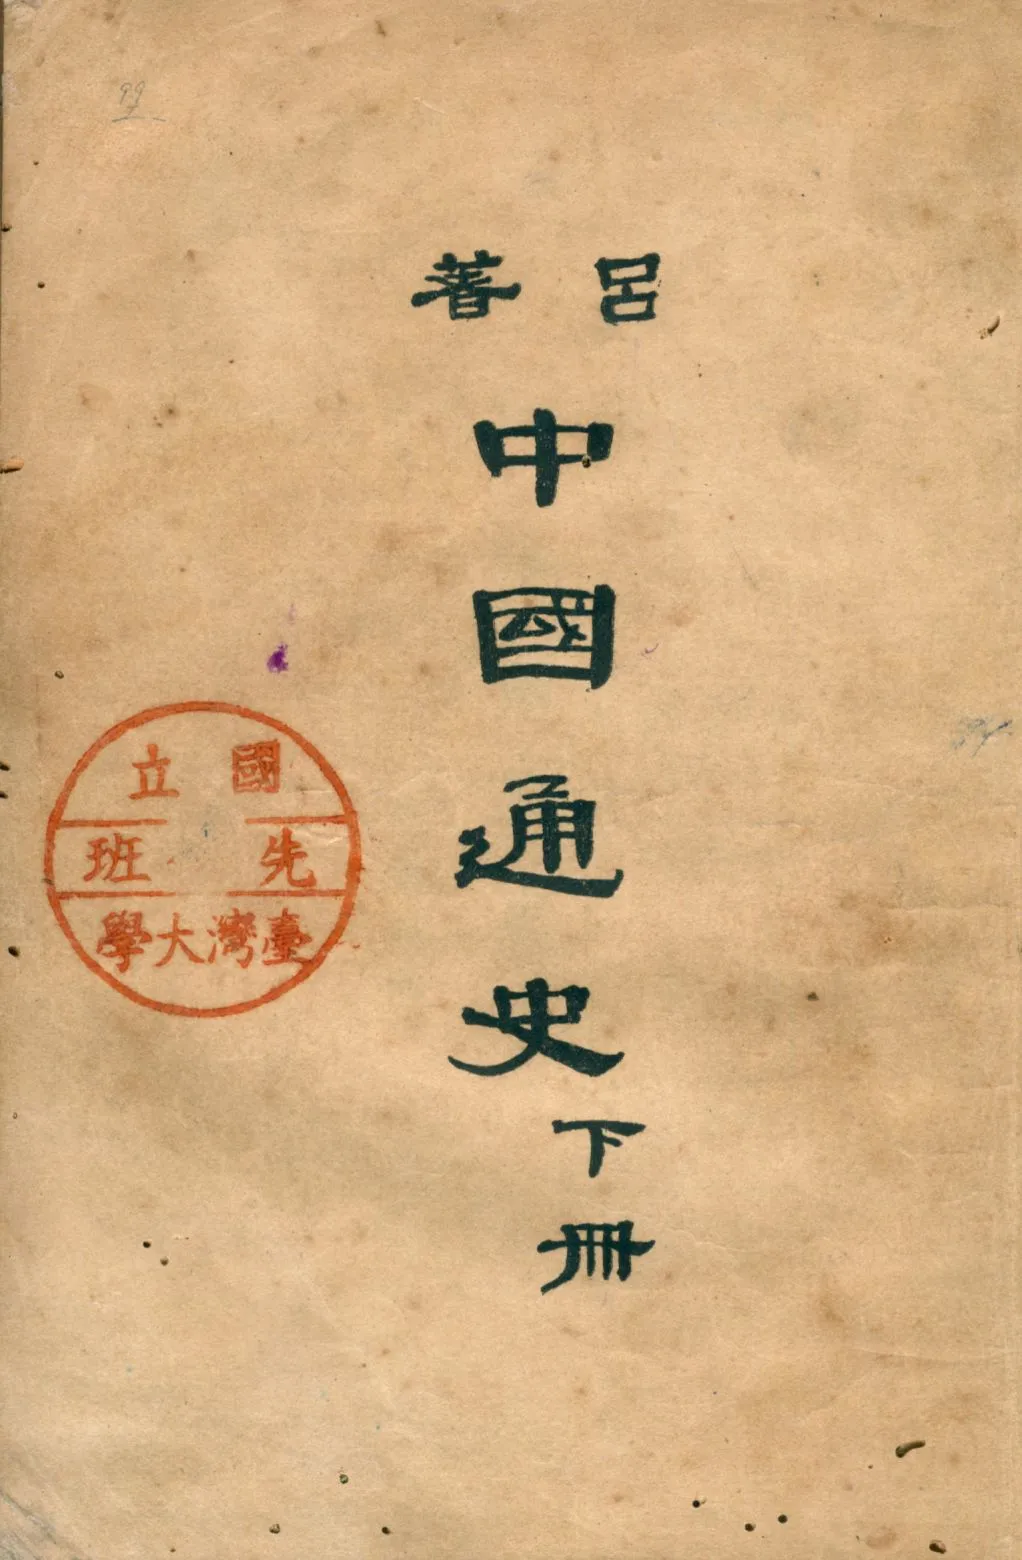 呂著
中國通史
下冊
國立
先班
臺灣大學
99